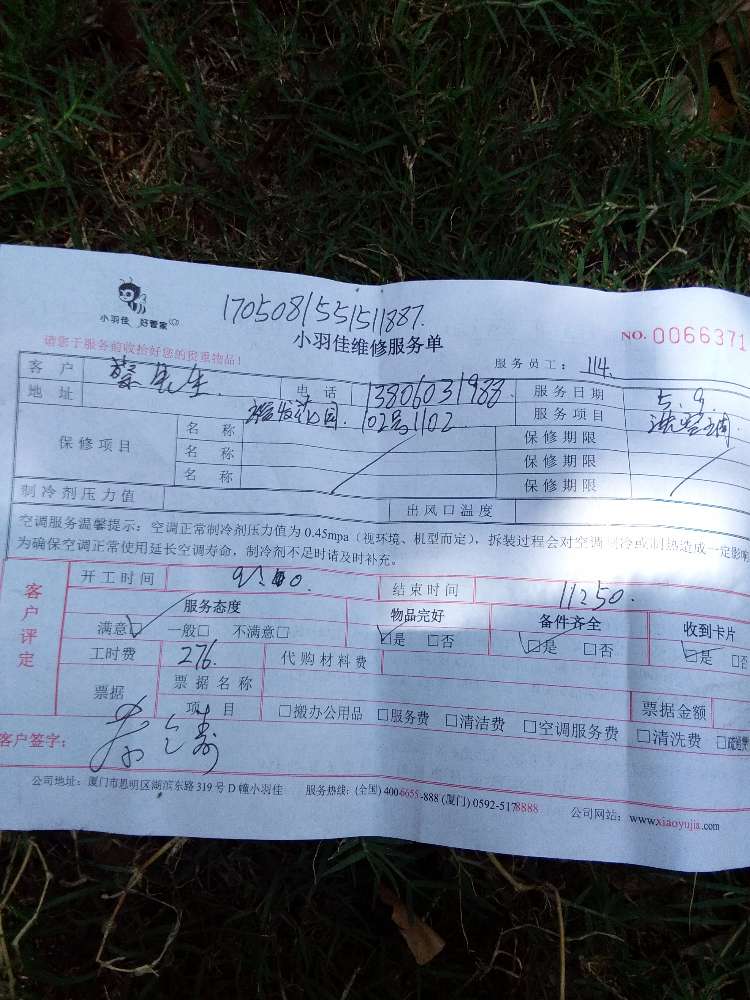 1705081551511887.
小羽佳 好管家
小羽佳维修服务单
NO. 0066371
请您于服务前收拾好您的贵重物品!
服务员工: 114.
客户 蔡先生. 电话 13806031988. 服务日期 5.9.
地址 花园. 102号1102 服务项目 洗空调.
保修项目 名称 保修期限
名称 保修期限
名称 保修期限
制冷剂压力值 出风口温度
空调服务温馨提示:空调正常制冷剂压力值为0.45mpa(视环境、机型而定),拆装过程会对空调制冷或制热造成一定影响
为确保空调正常使用延长空调寿命,制冷剂不足时请及时补充。
客户评定
开工时间 结束时间 11:50.
服务态度 物品完好 备件齐全 收到卡片
满意☑ 一般□ 不满意□ ☑是 □否 ☑是 □否 ☑是 □否
工时费 276. 代购材料费
票据 票据名称 票据金额
项目 □搬办公用品 □服务费 □清洁费 □空调服务费 □清洗费 □疏通费
客户签字:
公司地址:厦门市思明区湖滨东路319号D幢小羽佳 服务热线:(全国)400-6655-888 (厦门)0592-5178888 公司网站:www.xiaoyujia.com